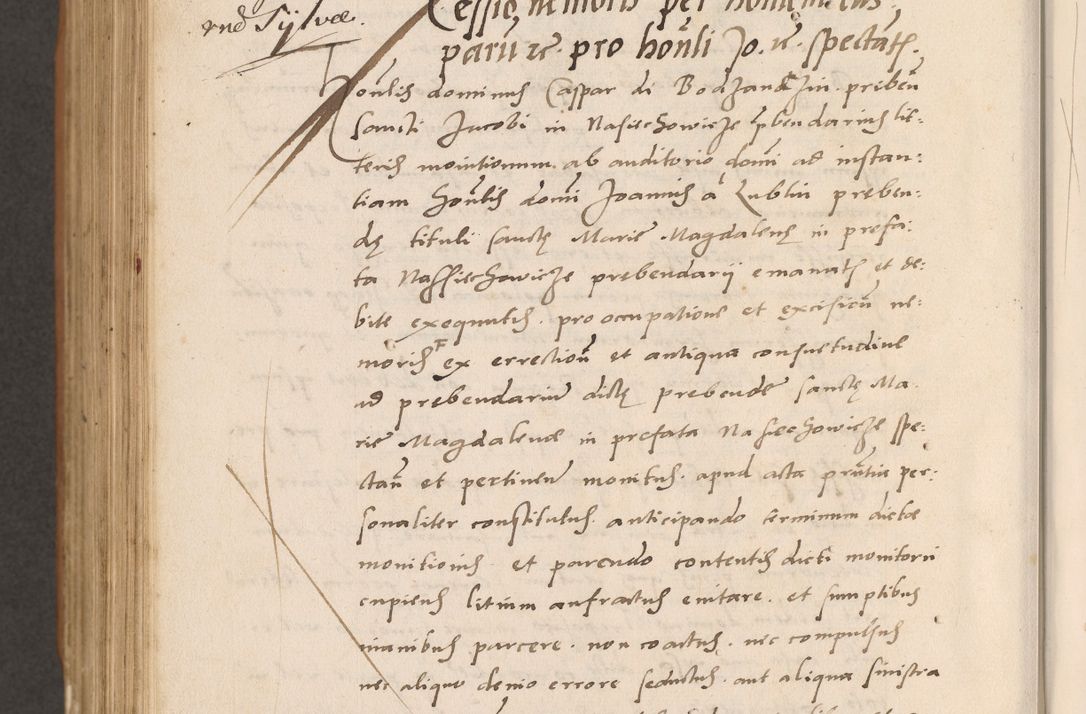 Cessio nemoris per honem
parum etc. pro honli Jo. etc. spectatis.
und Sylvae.
Honlis dominus Caspar di Bodzanczin preben
Sancti Jacobi in Nasiechowicze prebendarius lit:
teris monitionum ab auditorio domi ad instan:
tiam Honlis domi Joannis a Lublin preben:
dę tituli sanctę Marie Magdalenę in prefa:
ta Nassiechowicze prebendarij emanatis et de:
bite exequutis. pro occupatione et excisioni ne:
moris ex erectioni et antiqua consuetudine
ad prebendarium dictę prebende sanctę Ma:
rie Magdalenae in prefata Nasiechowicze spe:
ctan et pertinen monitus. apud acta pntia per:
sonaliter constitutus. anticipando terminum dictae
monitionis et parendo contentis dicti monitorii
cupiens litium anfractus evitare. et sumptibus
inanibus parcere. non coactus. nec compulsus
nec aliquo denio errore seductus. aut aliqua sinistra